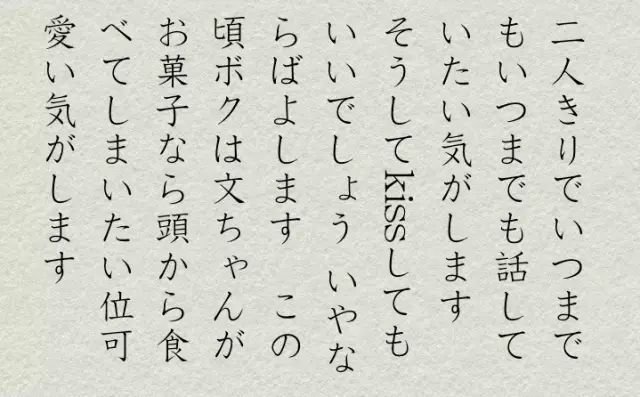 二人きりでいつまで
もいつまでも話して
いたい気がします
そうしてkissしても
いいでしょう　いやな
らばよします　この
頃ボクは文ちゃんが
お菓子なら頭から食
べてしまいたい位可
愛い気がします